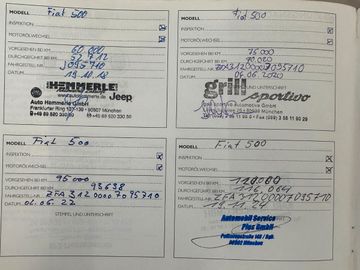 MODELL Fiat 500
INSPEKTION
MOTORÖLWECHSEL
VORGESEHEN BEI KM 60 000
DURCHGEFÜHRT BEI KM
FAHRGESTELL-NR. J095710
DATUM 19.10.18
HEMMERLE
Jeep
Auto Hemmerle GmbH
Frankfurter Ring
80807 München
MODELL Fiat 500
INSPEKTION
MOTORÖLWECHSEL
VORGESEHEN BEI KM 75 000
DURCHGEFÜHRT BEI KM 70 020
FAHRGESTELL-NR. ZFA3120000J095710
DATUM 06.06.2020
grill
sportivo
sportivo automotive GmbH
MODELL Fiat 500
INSPEKTION
MOTORÖLWECHSEL
VORGESEHEN BEI KM 95 000
DURCHGEFÜHRT BEI KM 93638
FAHRGESTELL-NR. ZFA3120000J095710
DATUM 01.06.22
STEMPEL UND UNTERSCHRIFT
MODELL Fiat 500
INSPEKTION
MOTORÖLWECHSEL
VORGESEHEN BEI KM
DURCHGEFÜHRT BEI KM
FAHRGESTELL-NR. ZFA3120000J095710
DATUM 19.11.24
Automobil Service
Plus GmbH
München